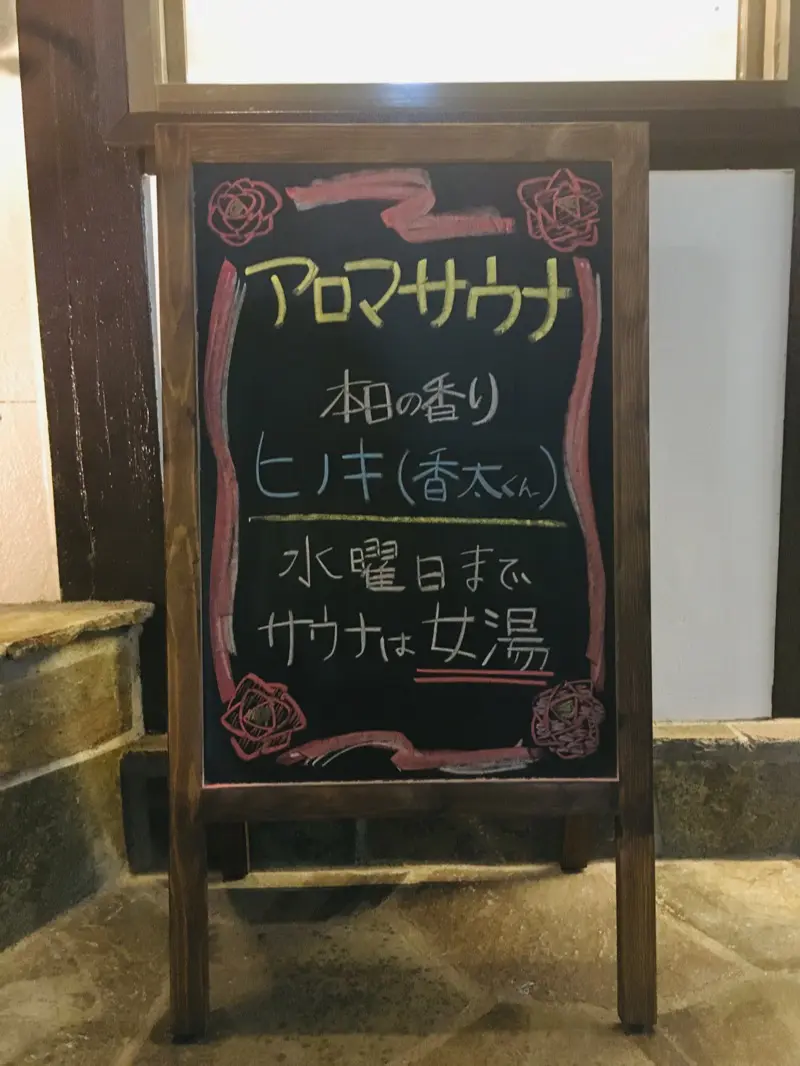 アロマサウナ
本日の香り
ヒノキ(香太くん)
水曜日まで
サウナは女湯